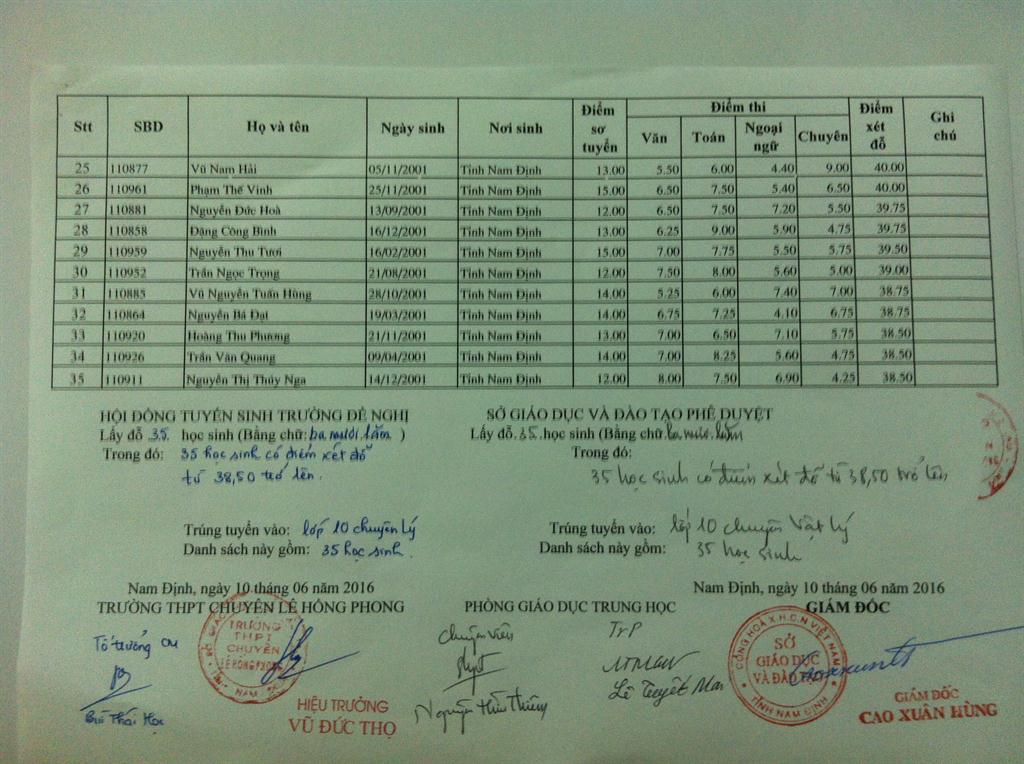 Stt SBD Họ và tên Ngày sinh Nơi sinh Điểm sơ tuyển Điểm thi Điểm xét đỗ Ghi chú
Văn Toán Ngoại ngữ Chuyên
25 110877 Vũ Nam Hải 05/11/2001 Tỉnh Nam Định 13.00 5.50 6.00 4.40 9.00 40.00
26 110961 Phạm Thế Vinh 25/11/2001 Tỉnh Nam Định 15.00 6.50 7.50 5.40 6.50 40.00
27 110881 Nguyễn Đức Hoà 13/09/2001 Tỉnh Nam Định 12.00 6.50 7.50 7.20 5.50 39.75
28 110858 Đặng Công Bình 16/12/2001 Tỉnh Nam Định 13.00 6.25 9.00 5.90 4.75 39.75
29 110959 Nguyễn Thu Tươi 16/02/2001 Tỉnh Nam Định 15.00 7.00 7.75 5.50 5.75 39.50
30 110952 Trần Ngọc Trọng 21/08/2001 Tỉnh Nam Định 12.00 7.50 8.00 5.60 5.00 39.00
31 110885 Vũ Nguyễn Tuấn Hùng 28/10/2001 Tỉnh Nam Định 14.00 5.25 6.00 7.40 7.00 38.75
32 110864 Nguyễn Bá Đạt 19/03/2001 Tỉnh Nam Định 14.00 6.75 7.25 4.10 6.75 38.75
33 110920 Hoàng Thu Phương 21/11/2001 Tỉnh Nam Định 13.00 7.00 6.50 7.10 5.75 38.50
34 110926 Trần Văn Quang 09/04/2001 Tỉnh Nam Định 14.00 7.00 8.25 5.60 4.75 38.50
35 110911 Nguyễn Thị Thúy Nga 14/12/2001 Tỉnh Nam Định 12.00 8.00 7.50 6.90 4.25 38.50
HỘI ĐỒNG TUYỂN SINH TRƯỜNG ĐỀ NGHỊ
Lấy đỗ 35 học sinh (Bằng chữ: ba mươi lăm )
Trong đó: 35 học sinh có điểm xét đỗ
từ 38,50 trở lên.
Trúng tuyển vào: lớp 10 chuyên Lý
Danh sách này gồm: 35 học sinh.
SỞ GIÁO DỤC VÀ ĐÀO TẠO PHÊ DUYỆT
Lấy đỗ 35 học sinh (Bằng chữ ba mươi lăm
Trong đó:
35 học sinh có điểm xét đỗ từ 38,50 trở lên
Trúng tuyển vào: lớp 10 chuyên Vật lý
Danh sách này gồm: 35 học sinh
Nam Định, ngày 10 tháng 06 năm 2016
TRƯỜNG THPT CHUYÊN LÊ HỒNG PHONG
Tổ trưởng CM
TRƯỜNG
THPT
CHUYÊN
LÊ HỒNG PHONG
HIỆU TRƯỞNG
VŨ ĐỨC THỌ
PHÒNG GIÁO DỤC TRUNG HỌC
Chuyên viên
TrP
Lê Tuyết Mai
Nam Định, ngày 10 tháng 06 năm 2016
GIÁM ĐỐC
CỘNG HOÀ X.H.C.N VIỆT NAM
SỞ
GIÁO DỤC
VÀ ĐÀO TẠO
TỈNH NAM ĐỊNH
GIÁM ĐỐC
CAO XUÂN HÙNG